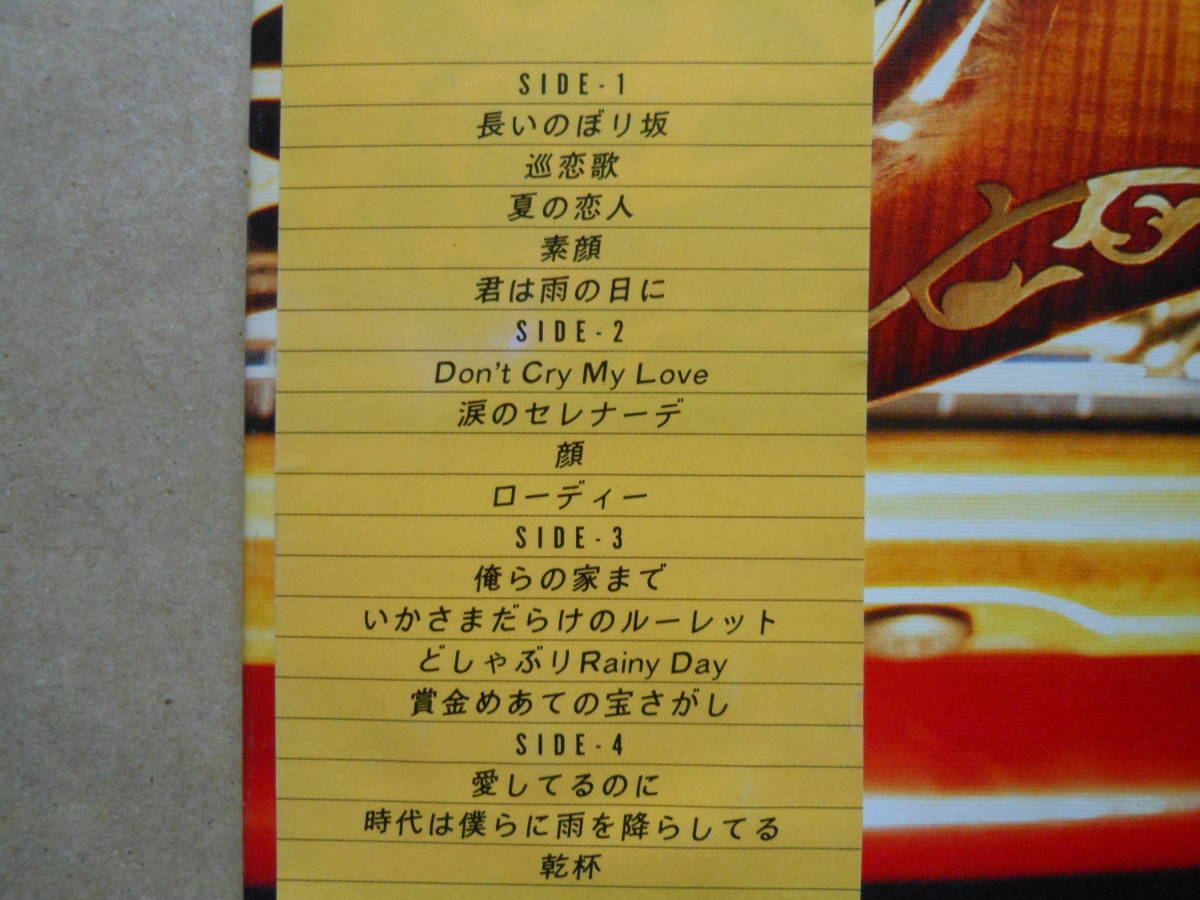 SIDE-1
長いのぼり坂
巡恋歌
夏の恋人
素顔
君は雨の日に
SIDE-2
Don't Cry My Love
涙のセレナーデ
顔
ローディー
SIDE-3
俺らの家まで
いかさまだらけのルーレット
どしゃぶりRainy Day
賞金めあての宝さがし
SIDE-4
愛してるのに
時代は僕らに雨を降らしてる
乾杯